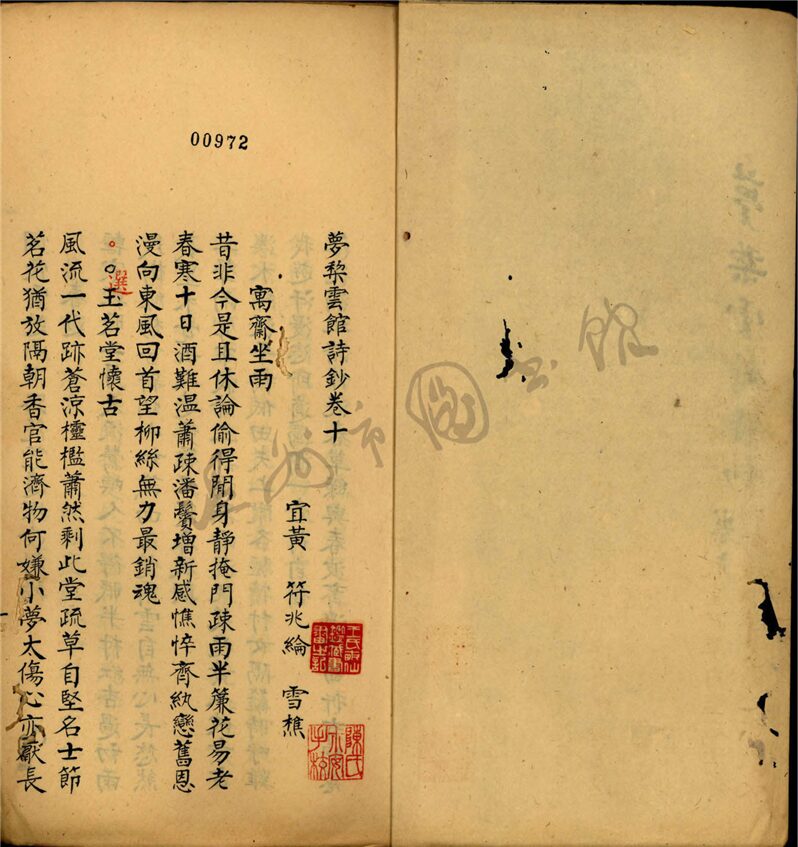 00972
夢棃雲館詩鈔卷十
宜黃 符兆綸 雪樵
寓齋坐雨
昔非今是且休論偷得閒身靜掩門疎雨半簾花易老
春寒十日酒難温蕭疎潘鬢增新感憔悴齊紈戀舊恩
漫向東風回首望柳絲無力最銷魂
選
玉茗堂懷古
風流一代跡蒼涼欞檻蕭然剩此堂疏草自堅名士節
茗花猶放隔朝香官能濟物何嫌小夢太傷心亦厭長